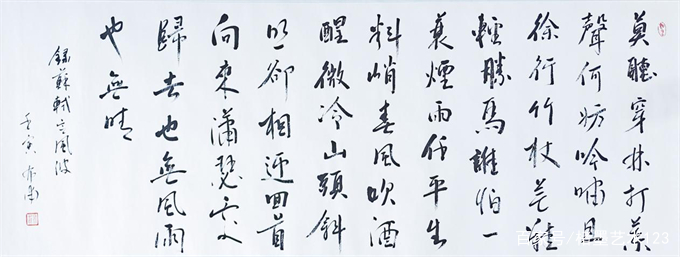 莫聽穿林打葉
聲何妨吟嘯且
徐行竹杖芒鞋
輕勝馬誰怕一
蓑煙雨任平生
料峭春風吹酒
醒微冷山頭斜
照卻相迎回首
向來瀟瑟處
歸去也無風雨
也無晴
錄蘇軾定風波
壬寅
百家号/艺术123